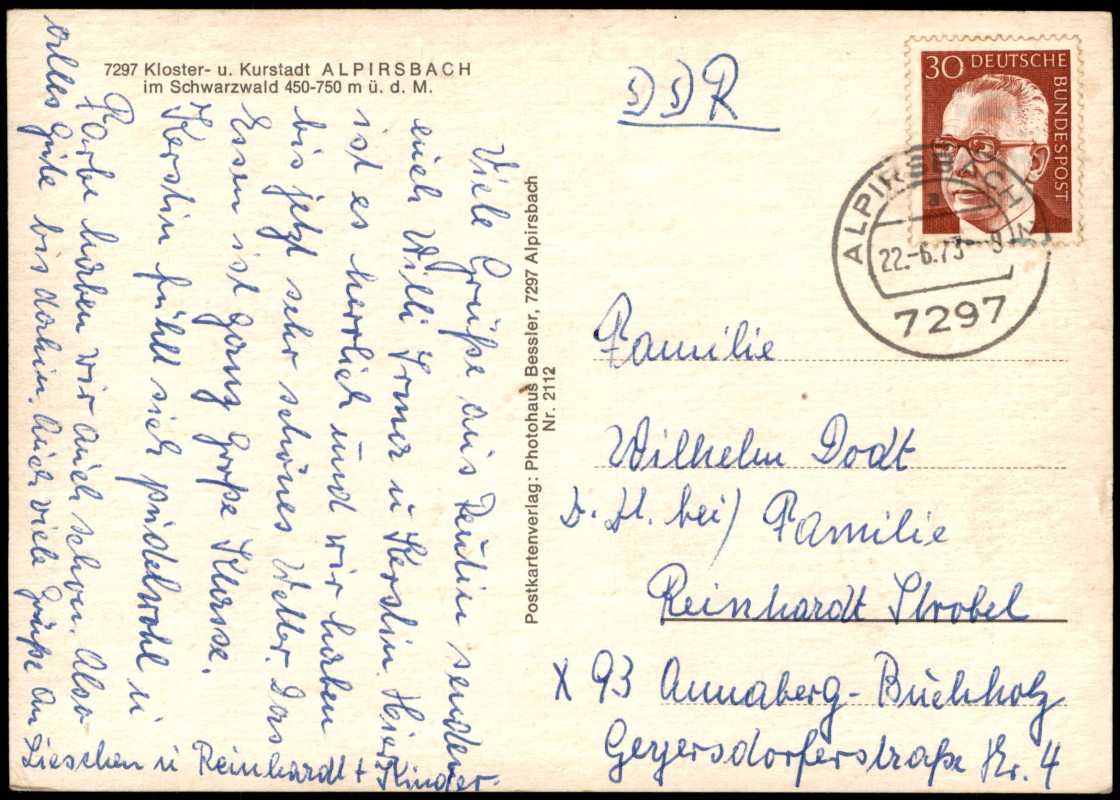 7297 Kloster- u. Kurstadt ALPIRSBACH
im Schwarzwald 450-750 m ü. d. M.
Viele Grüße aus senden
euch Willi Irma u Kerstin. Hier
ist es herrlich und wir haben
bis jetzt sehr schönes Wetter. Das
Essen ist ganz große Klasse.
Kerstin fühlt sich pudelwohl u
Farbe haben wir auch schon. Also
alles Gute bis dahin. Auch viele Grüße an
Lieschen u Reinhardt + Kinder.
Postkartenverlag: Photohaus Bessler, 7297 Alpirsbach
Nr. 2112
DDR
30 DEUTSCHE BUNDESPOST
ALPIRSBACH 1
a
22.-6.73- 9
7297
Familie
Wilhelm Dodt
z. Zt. bei) Familie
Reinhardt Strobel
X 93 Annaberg-Buchholz
Geyersdorferstraße Nr. 4